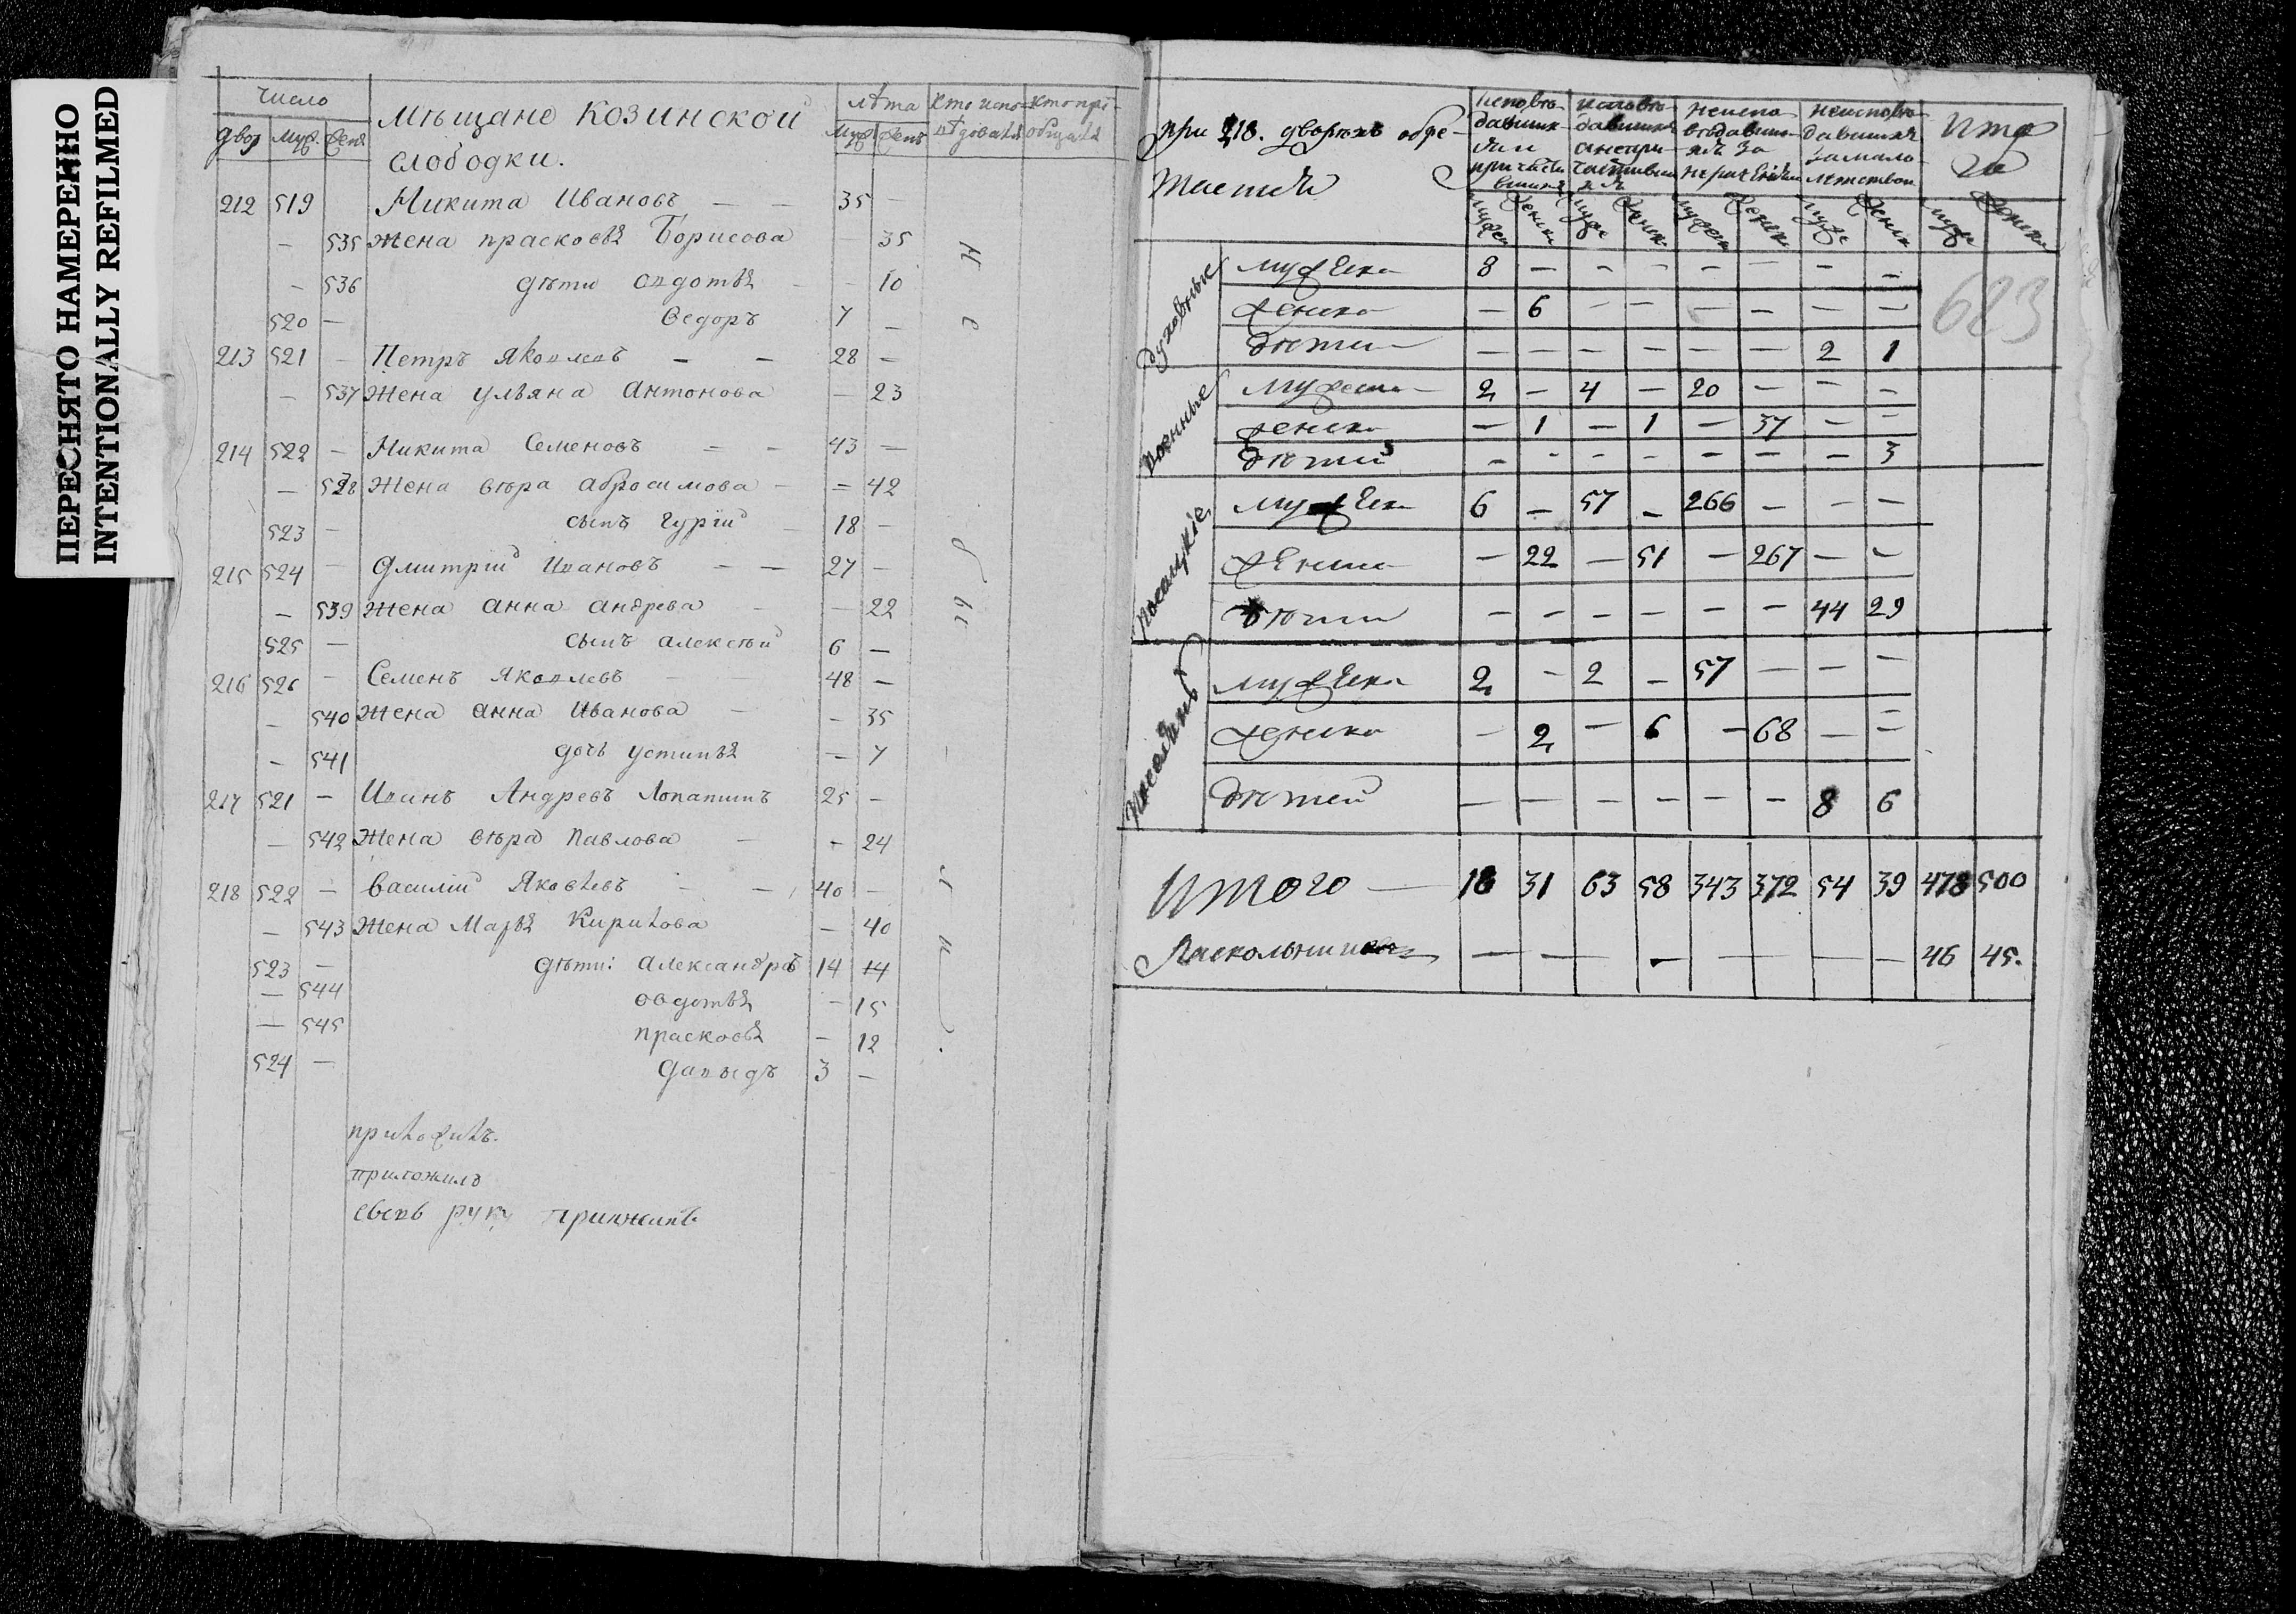 ПЕРЕСНЯТО НАМЕРЕННО
INTENTIONALLY REFILMED
Число
Двор Муж. Жен.
Мѣщане Козинской
слободки.
лѣта
Муж Жен
Кто испо-
вѣдовался
Кто прі-
общался
212 519 Никита Ивановъ — — 35 —
— 535 Жена прасковья Борисова 35
— 536 дѣти овдотья — — 10
520 — Ѳедоръ 7 —
213 521 — Петръ Яковлевъ — — 28 —
— 537 Жена ульяна Антонова — 23
214 522 — Никита Семеновъ — — 43 —
— 538 Жена вѣра абросимова — — 42
523 — сынъ гурій — 18 —
215 524 — Дмитрій Ивановъ — — 27 —
— 539 Жена анна андрева — — 22
525 — сынъ алексѣй 6 —
216 526 — Семенъ Яковлевъ — — 48 —
— 540 Жена анна Иванова — — 35
— 541 дочь устинья — 7
217 521 — Иванъ Андревъ Лопатинъ 25 —
— 542 Жена вѣра Павлова — — 24
218 522 — Василий Яковлевъ — — 40 —
— 543 Жена Марья Кирилова — 40
523 — дѣти: александръ 14 14
— 544 овдотья — 15
— 545 прасковья — 12
524 — давыдъ 3 —
не были
приложилъ.
приложилъ
руку приложилъ
при 218. дворѣхъ обре-
исповѣ-
давших-
ся и
причасти
вшихся
исповѣ-
давшихся
анепри-
частивши
хъ
неиспо
вѣдавши-
хъ за
нерачениемъ
неисповѣ-
давшихся
замало-
лѣтством
Ито
го
мужеск женска муже женск мужеск женск муже женск муже женска
623
духовные
мужеска 8 — — — — — — —
женска — 6 — — — — — —
дѣтей — — — — — — 2 1
военные
мужеска — 2 — 4 — 20 — — —
женска — 1 — 1 — 37 — —
дѣтей — — — — — — — 3
Посацкіе
мужеска 6 — 57 — 266 — — —
женска — 22 — 51 — 267 — —
дѣтей — — — — — — 44 29
мужеска 2 — 2 — 57 — — —
женска — 2 — 6 — 68 — —
дѣтей — — — — — — 8 6
Итого — 18 31 63 58 343 372 54 39 478 500
Раскольников — — — — — — 46 45.